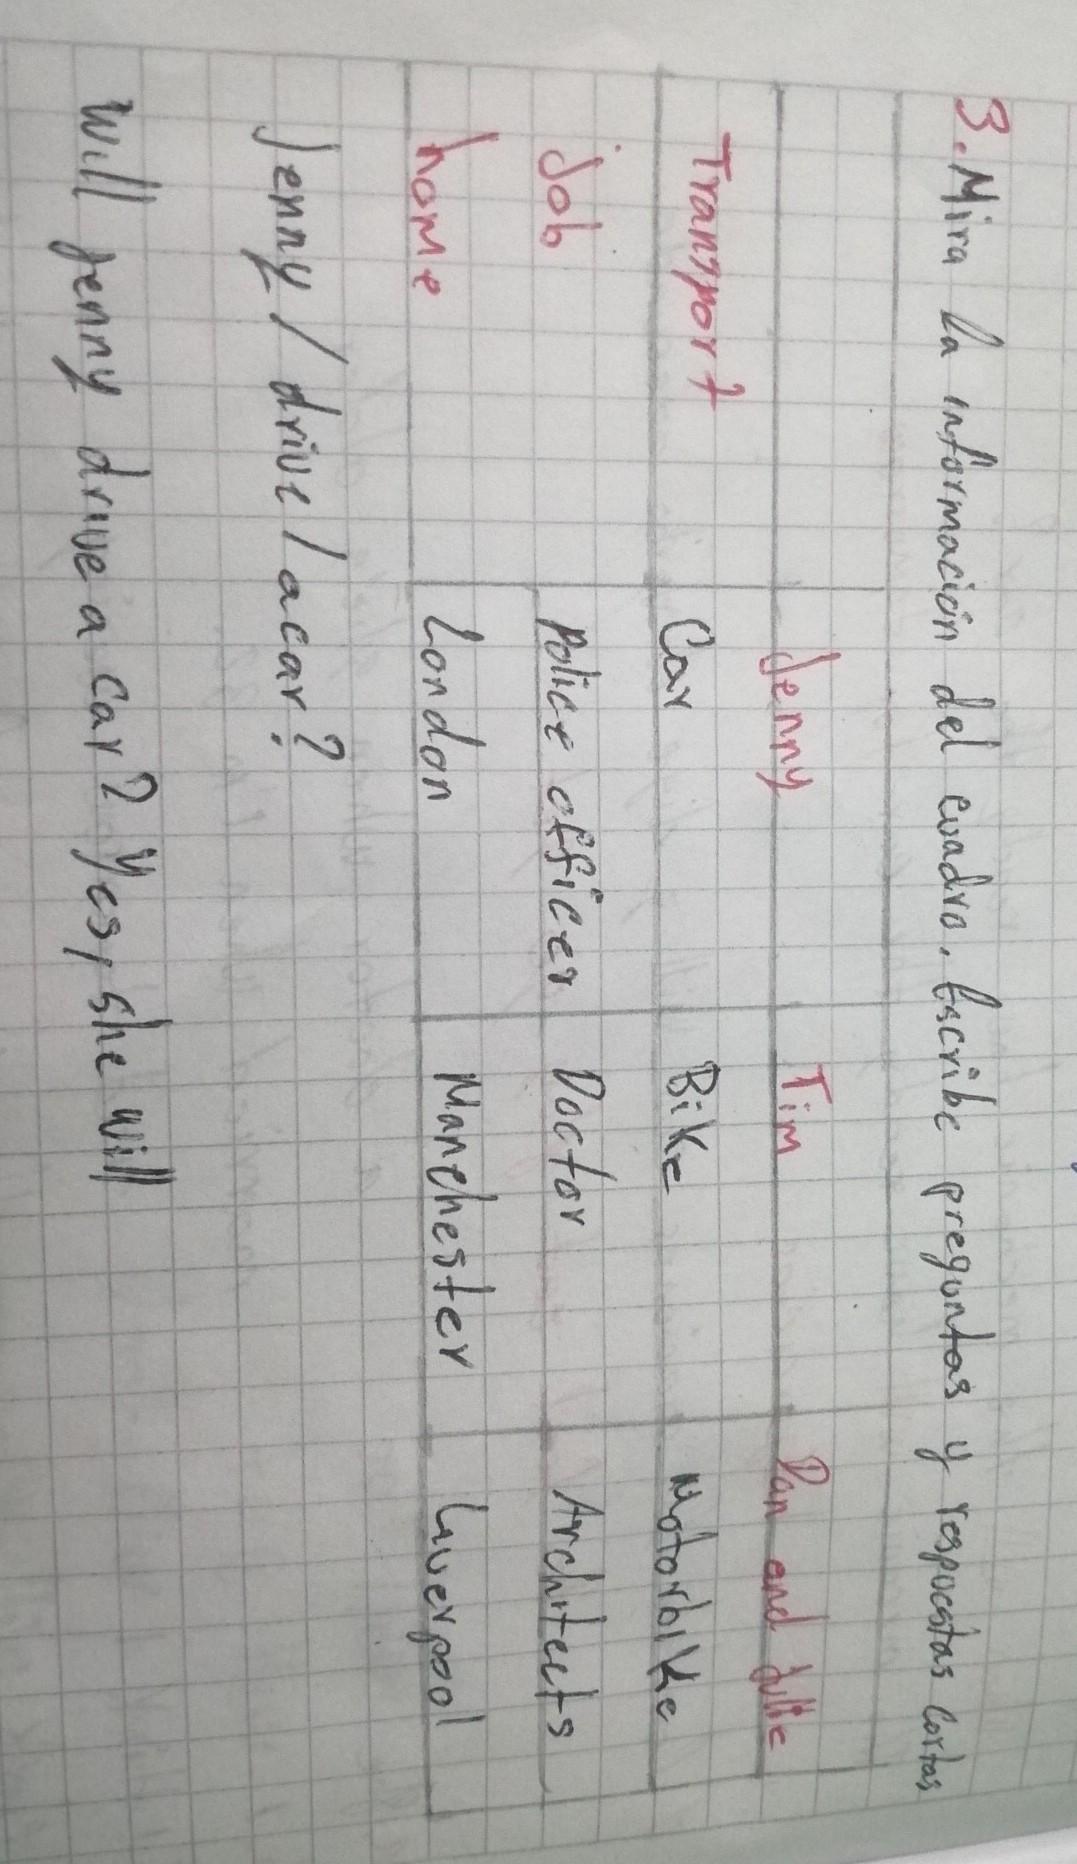 3. Mira la información del cuadro. Escribe preguntas y respuestas cortas
Jenny Tim Dan and Julie
Transport Car Bike Motorbike
Job Police officer Doctor Architects
home London Manchester Liverpool
Jenny / drive / a car?
Will Jenny drive a car? Yes, she will